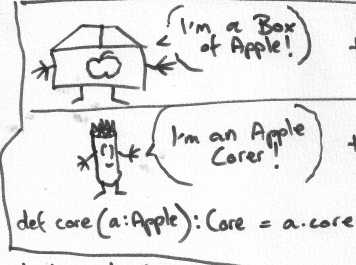 I'm a Box
of Apple!
I'm an Apple
Corer!
def core(a:Apple): Core = a.core